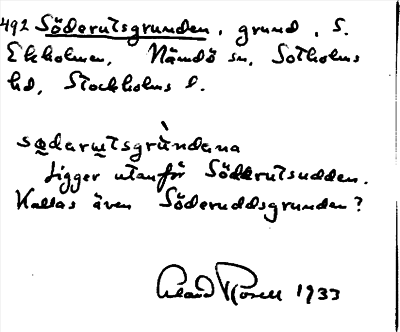 492 Söderutsgrunden, grund, S.
Ekholmen, Nämdö sn, Sotholms
hd, Stockholms l.
sødarutsgrùndana
Ligger utanför Söderutsudden.
Kallas även Söderuddsgrunden?
Rosell 1933